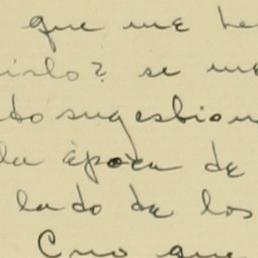 que me he
irlo? se me
do sugestion
la época de
lado de los
Cruo que